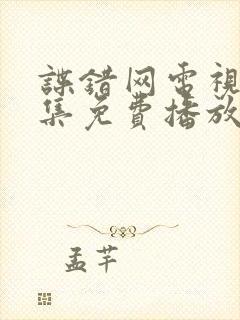 諜錯网电視
集免費播放
孟芊